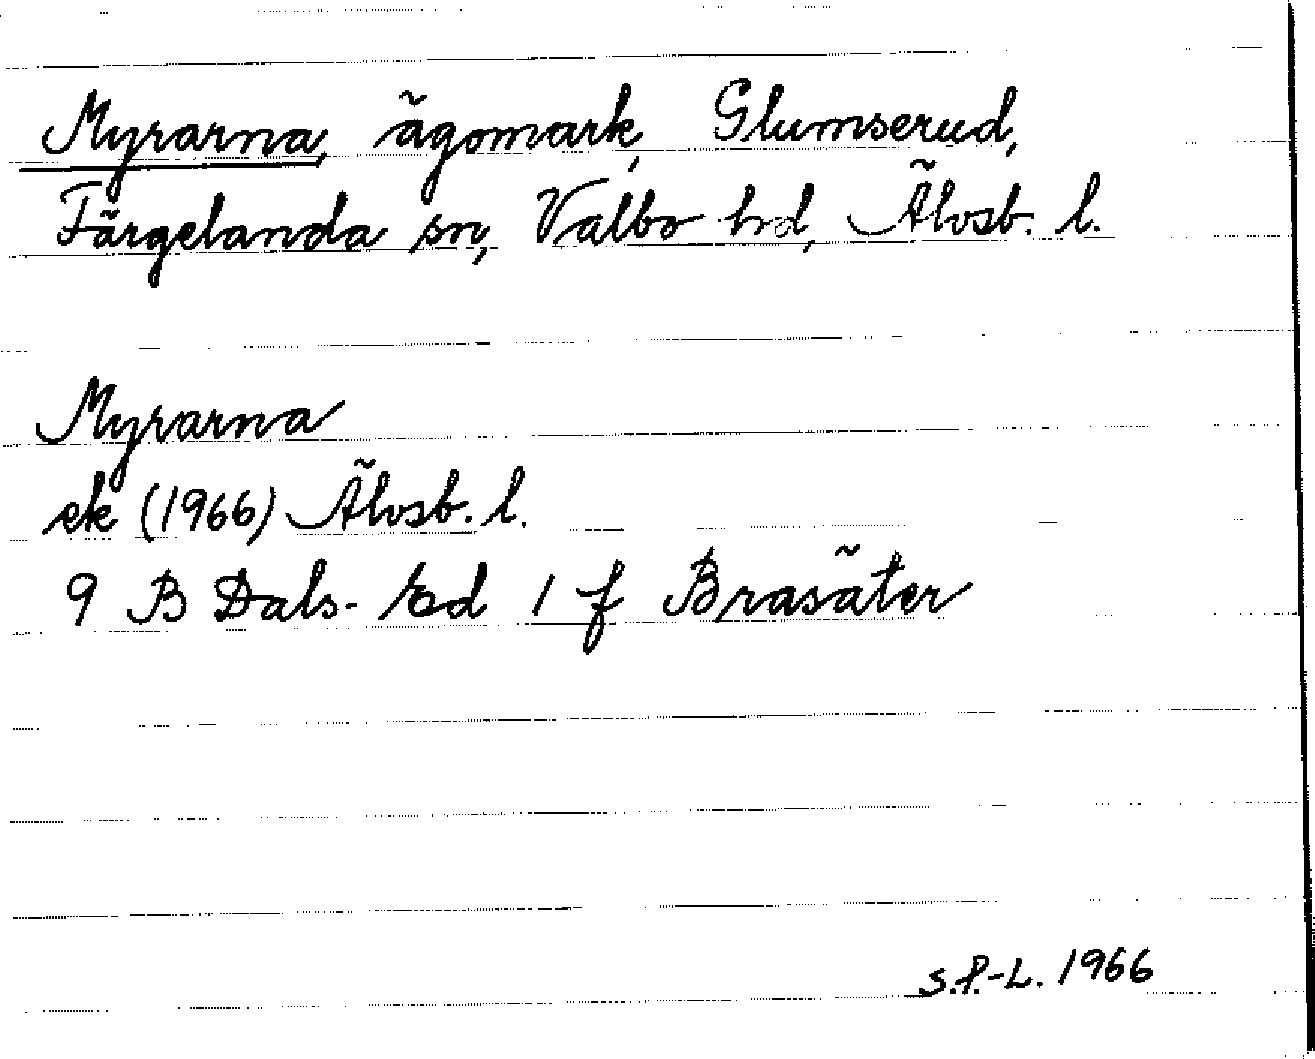 Myrarna, ägomark, Glumserud,
Färgelanda sn, Valbo hd, Älvsb. l.
Myrarna
ek (1966) Älvsb. l.
9 B Dals-Ed 1 f Brasäter
S.P.-L. 1966